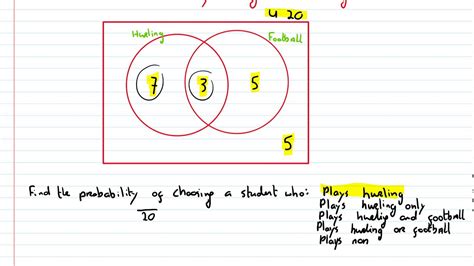 U 20
Hurling
Football
7
3
5
5
Find the probability of choosing a student who: Plays hurling
20
Plays hurling only
Plays hurling and football
Plays hurling or football
Plays non